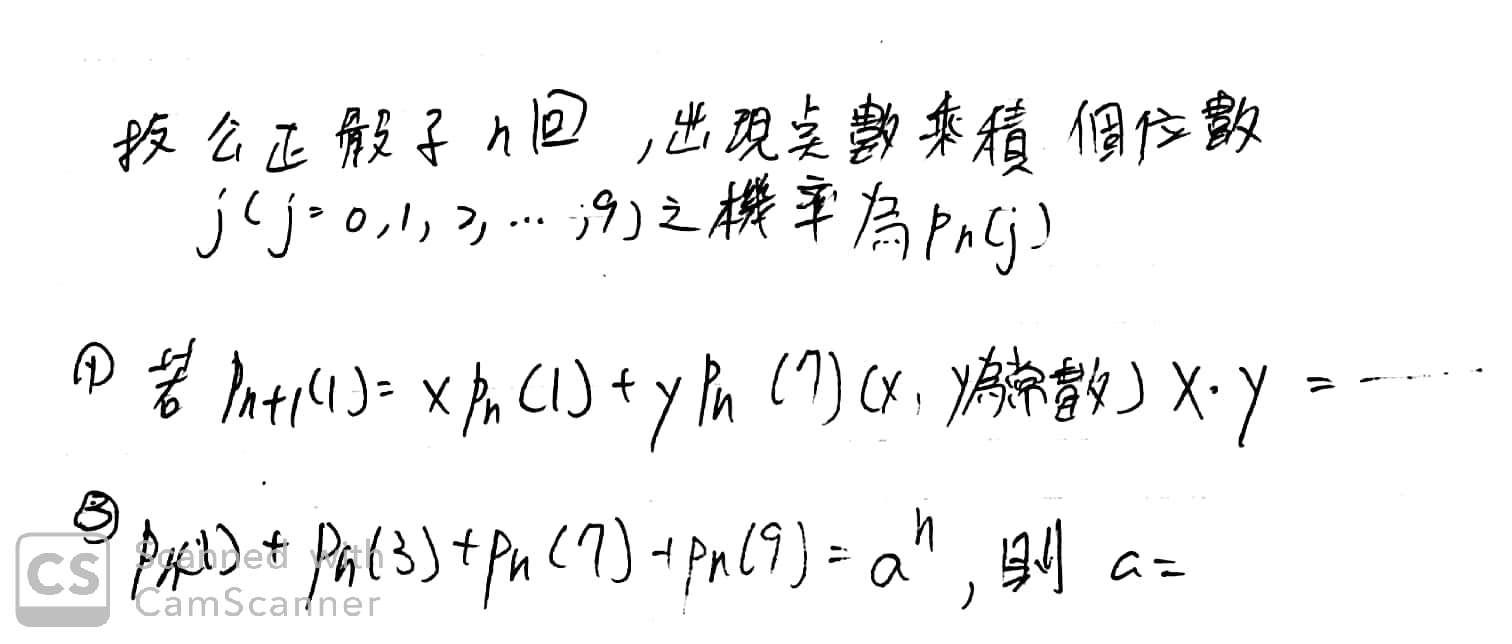 投公正骰子n回,出現点數乘積個位數
j(j=0,1,2,…,9)之機率為Pn(j)
① 若 Pn+1(1)=xPn(1)+yPn(7)(x,y為常數)x·y=……
③ Pn(1)+Pn(3)+Pn(7)+Pn(9)=a^n,則 a=
CS Scanned with
CamScanner